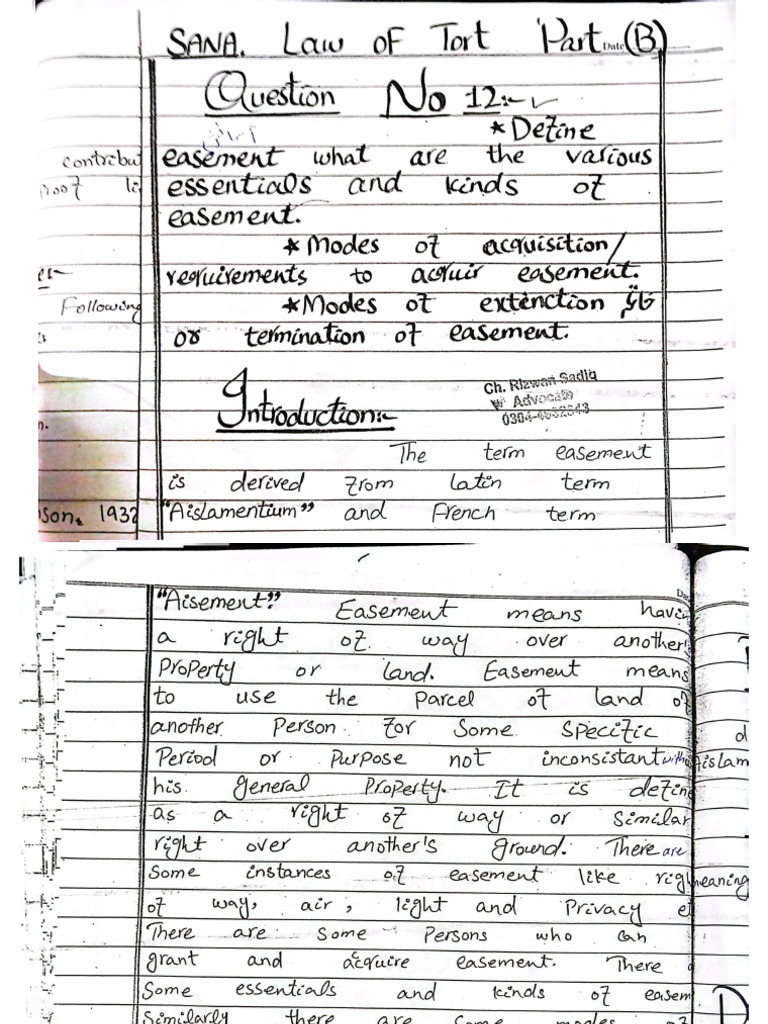 SANA. Law of Tort Part Date (B)
Question No 12:-
* Define
contribut
easement what are the various
proof li
essentials and kinds of
easement.
* Modes of acquisition/
requirements to acquir easement.
Following
* Modes of extenction
or termination of easement.
Ch. Rizwan Sadiq
Advocate
Introduction:-
The term easement
is derived from latin term
son, 1932
"Aislamentium" and French term
"Aisement." Easement means havin
a right of way over another's
Property or land. Easement means
to use the parcel of land of
another person for some specific
Period or purpose not inconsistant with
Aislam
his general Property. It is define
as a right of way or similar
right over another's ground. There are
Some instances of easement like righ
meaning
of way, air, light and Privacy e
There are some Persons who can
grant and acquire easement. There
Some essentials and kinds of easem
Similarly there are some modes of